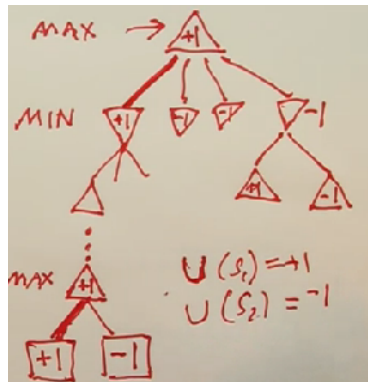 MAX → +1
MIN +1 -1 -1 -1
+1 -1
MAX +1
U (S₁) = +1
U (S₂) = -1
+1 -1